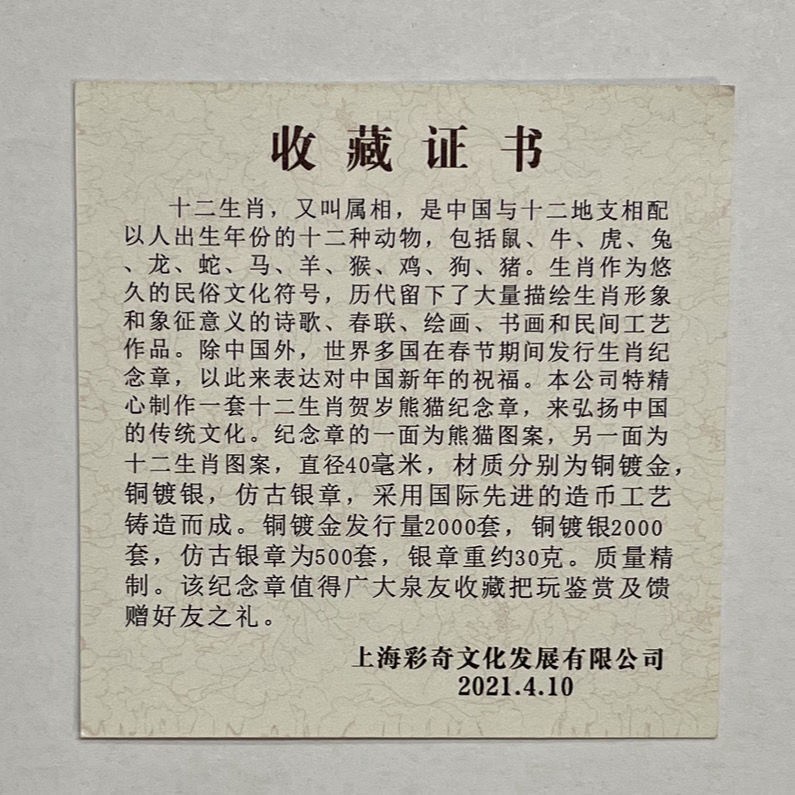 收藏证书
十二生肖，又叫属相，是中国与十二地支相配
以人出生年份的十二种动物，包括鼠、牛、虎、兔
、龙、蛇、马、羊、猴、鸡、狗、猪。生肖作为悠
久的民俗文化符号，历代留下了大量描绘生肖形象
和象征意义的诗歌、春联、绘画、书画和民间工艺
作品。除中国外，世界多国在春节期间发行生肖纪
念章，以此来表达对中国新年的祝福。本公司特精
心制作一套十二生肖贺岁熊猫纪念章，来弘扬中国
的传统文化。纪念章的一面为熊猫图案，另一面为
十二生肖图案，直径40毫米，材质分别为铜镀金，
铜镀银，仿古银章，采用国际先进的造币工艺
铸造而成。铜镀金发行量2000套，铜镀银2000
套，仿古银章为500套，银章重约30克。质量精
制。该纪念章值得广大泉友收藏把玩鉴赏及馈
赠好友之礼。
上海彩奇文化发展有限公司
2021.4.10